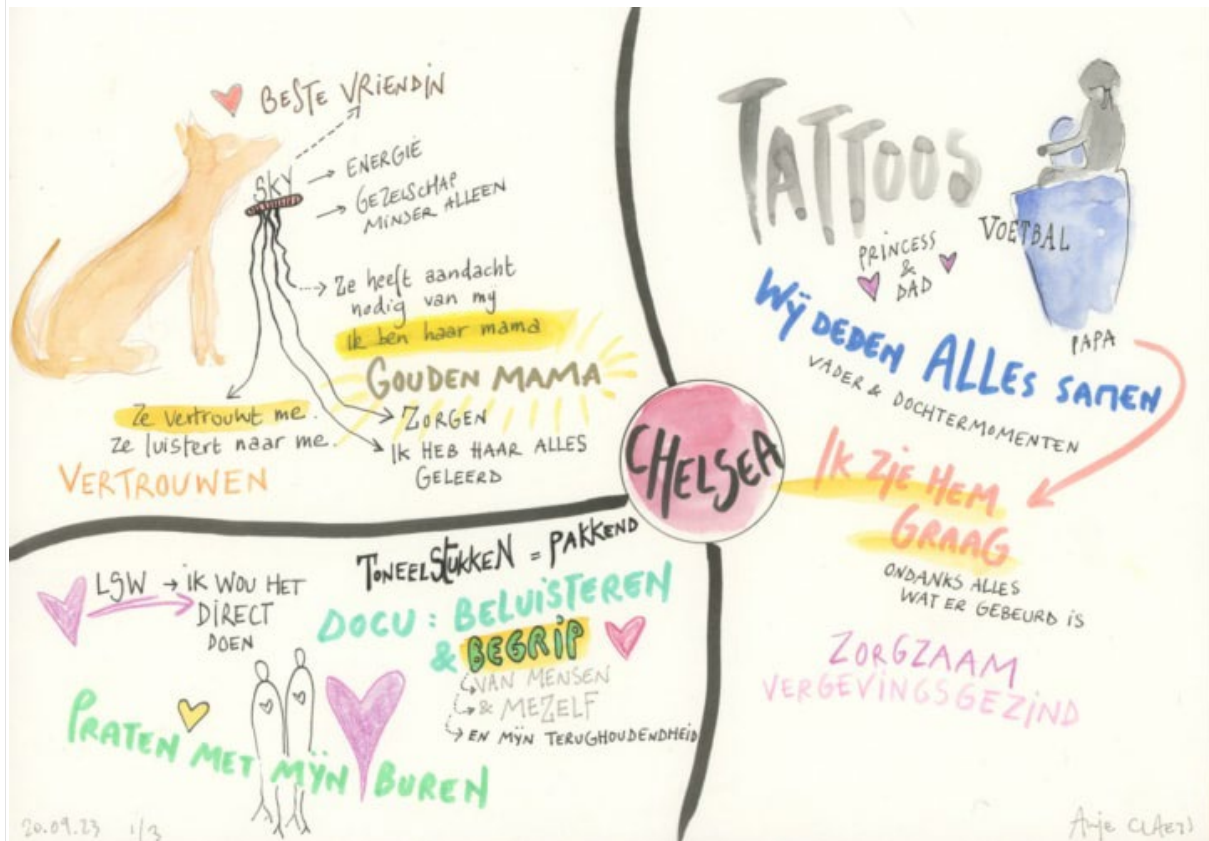 BESTE VRIENDIN
SKY
→ ENERGIE
→ GEZELSCHAP
MINDER ALLEEN
→ Ze heeft aandacht
nodig van mij
Ik ben haar mama
GOUDEN MAMA
Ze vertrouwt me.
ze luistert naar me.
VERTROUWEN
ZORGEN
IK HEB HAAR ALLES
GELEERD
TATTOOS
PRINCESS
&
DAD
VOETBAL
PAPA
WIJ DEDEN ALLES SAMEN
VADER & DOCHTERMOMENTEN
IK ZIE HEM
GRAAG
ONDANKS ALLES
WAT ER GEBEURD IS
ZORGZAAM
VERGEVINGSGEZIND
CHELSEA
LSW → IK WOU HET
DIRECT
DOEN
TONEELSTUKKEN = PAKKEND
DOCU : BELUISTEREN
& BEGRIP
VAN MENSEN
& MEZELF
EN MIJN TERUGHOUDENDHEID
PRATEN MET MIJN BUREN
20.09.23 1/3
Anje CLAEYS